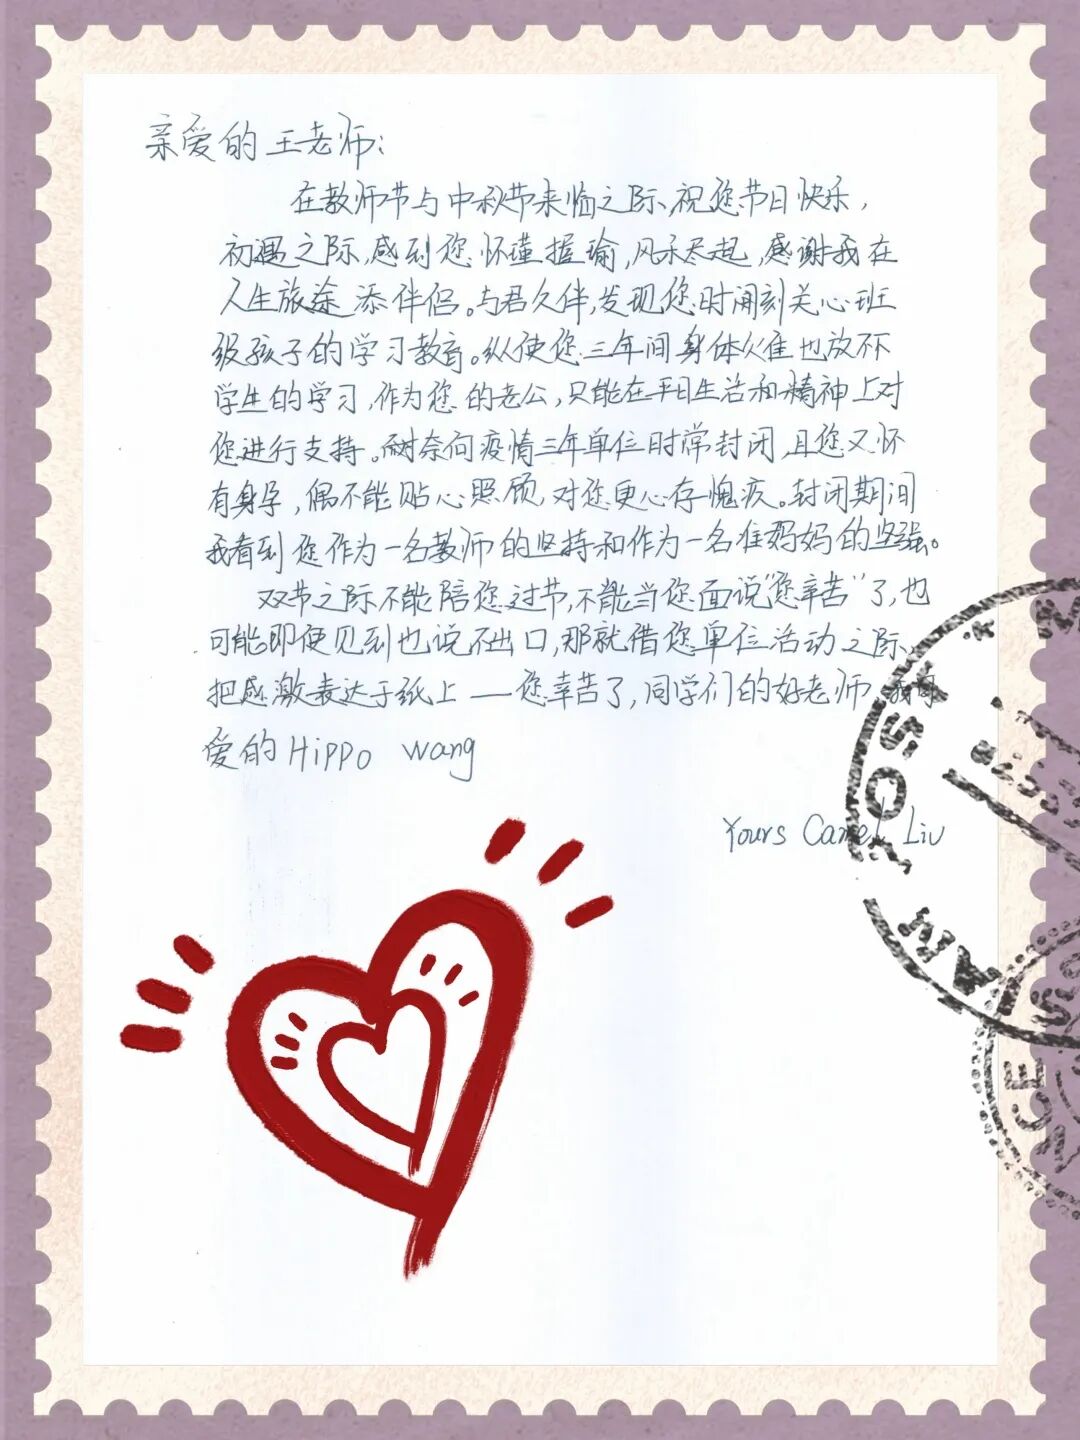 亲爱的王老师:
在教师节与中秋节来临之际,祝您节日快乐,
初遇之际,感到您怀瑾握瑜,风禾尽起,感谢我在
人生旅途添伴侣。与君久伴,发现您时间刻关心班
级孩子的学习教育。纵使您三年间身体难也放不
学生的学习,作为您的老公,只能在平日生活和精神上对
您进行支持。耐奈何疫情三年单位时常封闭,且您又怀
有身孕,偶不能贴心照顾,对您更心存愧疚。封闭期间
我看到您作为一名教师的坚持和作为一名准妈妈的坚强。
双节之际不能陪您过节,不能当您面说“您辛苦”了,也
可能即便见到也说不出口,那就借您单位活动之际、
把感激表达于纸上——您辛苦了,同学们的好老师,我可
爱的Hippo Wang
Yours Camel Liu
POST